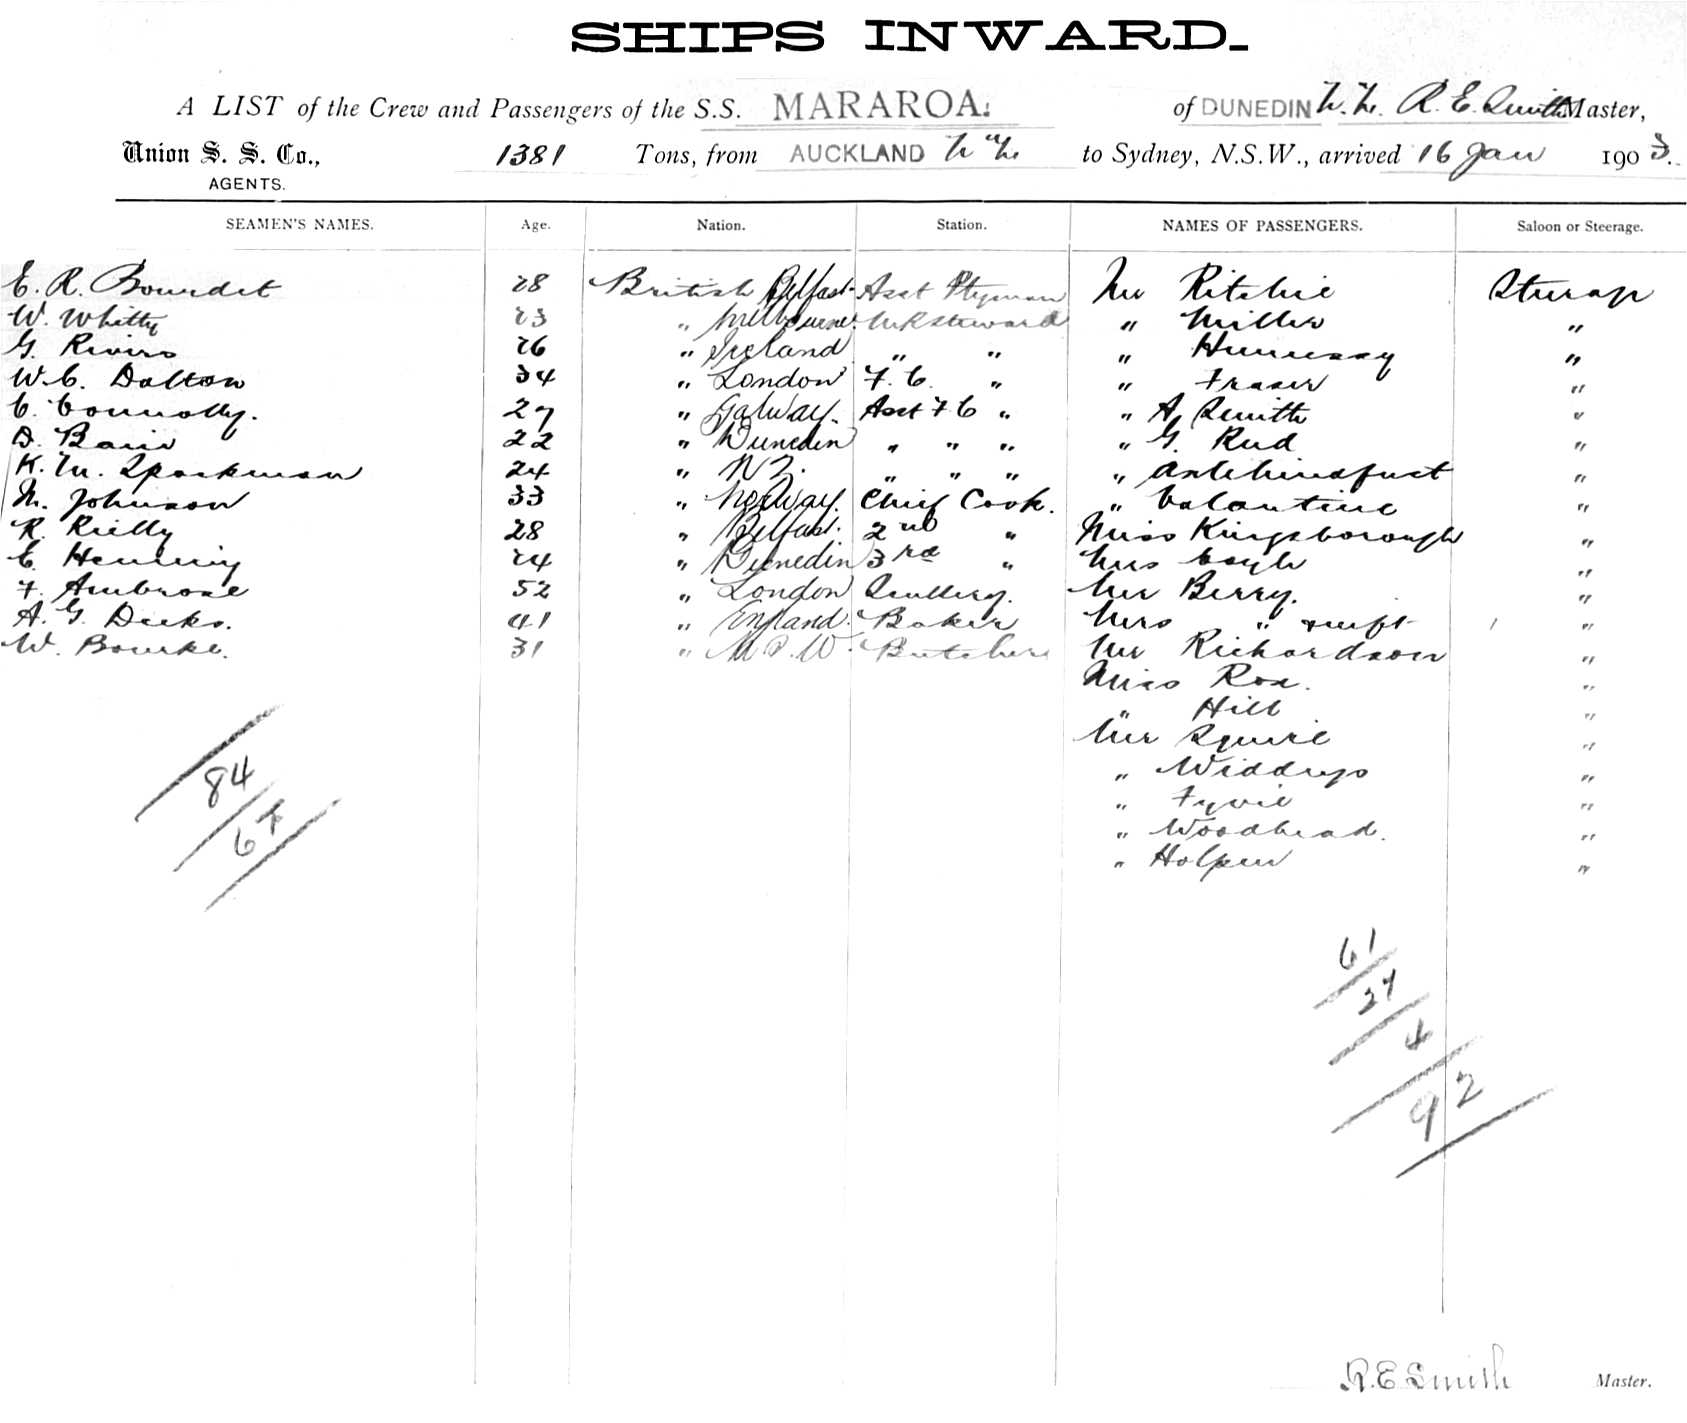 SHIPS INWARD.
A LIST of the Crew and Passengers of the S.S. MARAROA. of DUNEDIN N.Z. R. E. Smith Master,
Union S. S. Co., 1381 Tons, from AUCKLAND N.Z. to Sydney, N.S.W., arrived 16 Jan 1903.
AGENTS.
SEAMEN'S NAMES. Age. Nation. Station. NAMES OF PASSENGERS. Saloon or Steerage.
E. R. Bourdet 28 British Belfast Asst Ptyman Mr Ritchie
W. Whitty 23 " Melbourne steward " Miller "
G. Rivers 26 " Ireland " " " Hennessy "
W. C. Dalton 34 " London F. C. " " Fraser "
C. Connolly. 27 " Galway. Asst F C " " A. Smith "
D. 22 " Dunedin " " " " G. "
K. M. Sparkman 24 " N Z. " " " " "
M. Johnson 33 " Norway. Chief Cook. " Valantine "
R. Rielly 28 " Belfast. 2nd " Miss Kingsborough "
E Henning 24 " Dunedin 3rd " Mrs "
F. Ambrose 52 " London Scullery. Mr Berry. "
A. G. Deeks. 41 " England. Baker Mrs " "
W. Bourke. 31 " N.S.W. Butcher Mr Richardson "
Miss Rose. "
" Hill "
Mr Squire "
" "
" Fyvie "
" Woodhead. "
" "
84
6
61
27
4
92
R. E. Smith Master.